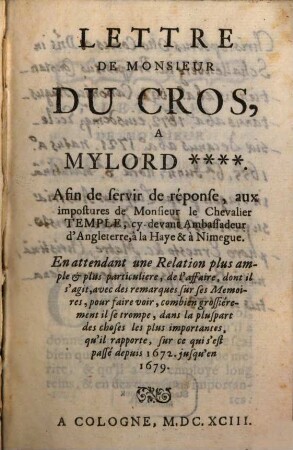 LETTRE
DE MONSIEUR
DU CROS,
A
MYLORD ****.
Afin de servir de réponse, aux
impostures de Monsieur le Chevalier
TEMPLE, cy-devant Ambassadeur
d'Angleterre, à la Haye & à Nimegue.
En attendant une Relation plus am-
ple & plus particuliere, de l'affaire, dont il
s'agit, avec des remarques sur ses Memoi-
res, pour faire voir, combien grossière-
ment il se trompe, dans la pluspart
des choses les plus importantes,
qu'il rapporte, sur ce qui s'est
passé depuis 1672. jusqu'en
1679.
A COLOGNE, M.DC.XCIII.